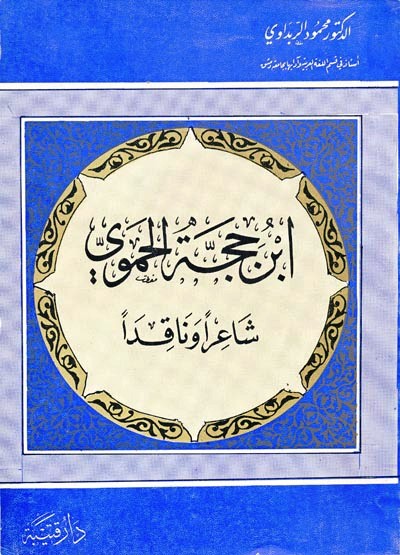 الدكتور محمود الربداوي
أستاذ في قسم اللغة العربية وآدابها بجامعة دمشق
ابن حجّة الحمويّ
شاعراً وناقداً
دار قتيبة